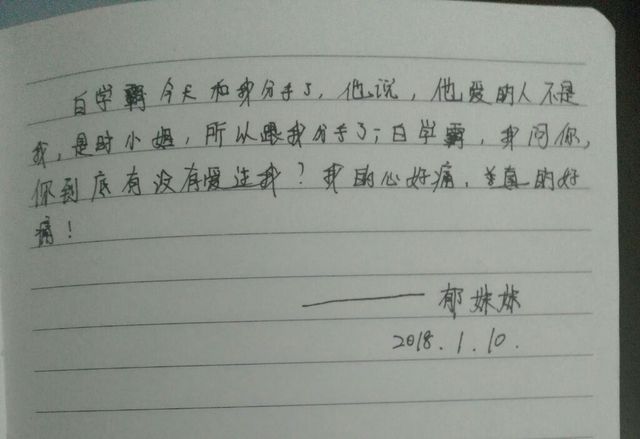 白学霸今天和我分手了，他说，他爱的人不是
我，是时小姐，所以跟我分手了；白学霸，我问你，
你到底有没有爱过我？我的心好痛，真的好
痛！
——郁妹妹
2018.1.10.